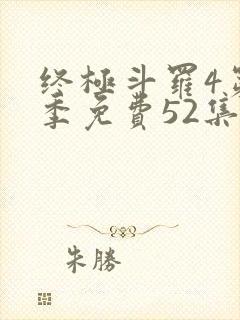 终極斗羅4第
季免費52集
朱勝